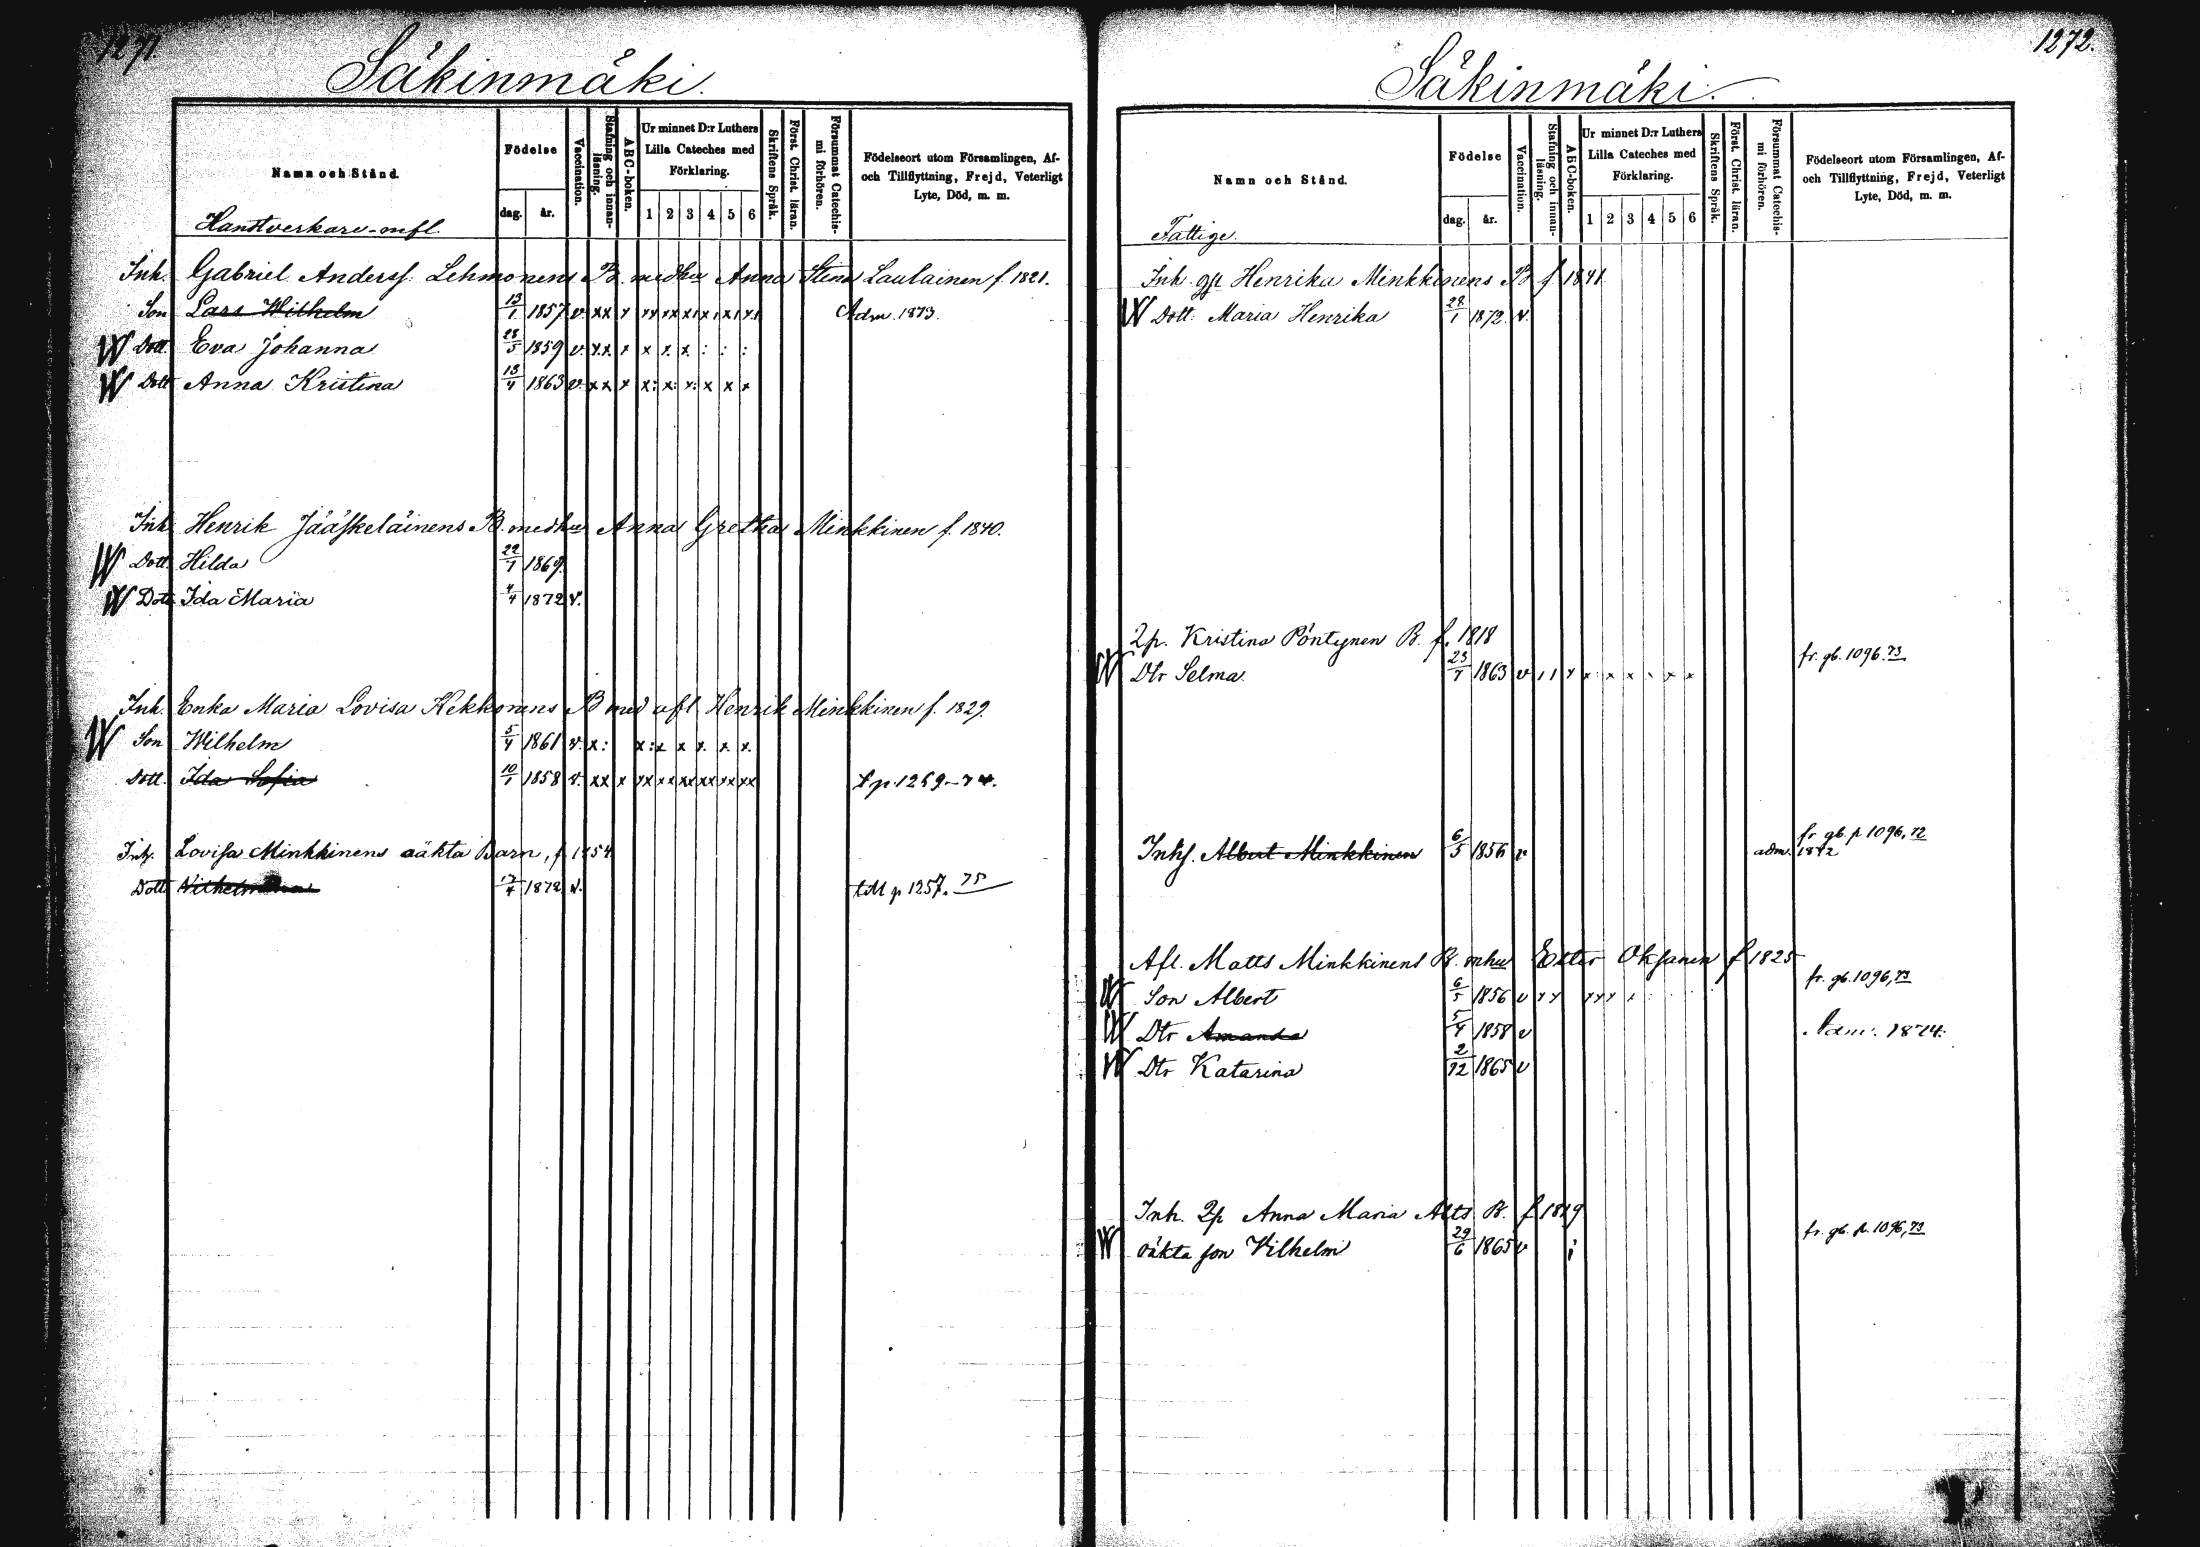 1271.
Säkinmäki.
Namn och Stånd.
Födelse
dag. år.
Vaccination.
Stafning och innanläsning.
ABC-boken.
Ur minnet D:r Luthers Lilla Cateches med Förklaring.
1 2 3 4 5 6
Skriftens Språk.
Först. Christ. läran.
Försummat Catechismi förhören.
Födelseort utom Församlingen, Af- och Tillflyttning, Frejd, Veterligt Lyte, Död, m. m.
Handtverkare-mfl.
Inh. Gabriel Anderss. Lehmonens B. med hu Anna Stina Laulainen f. 1821.
Son Lars Wilhelm 13/1 1857 v. xx x xx xx x x x x Adm. 1873.
W Dott. Eva Johanna 28/5 1859 v. x.x. x x x. x. : : :
W Dott Anna Kristina 13/4 1863 v. x x x x: x: x: x x x
Inh. Henrik Jääskeläinens B. med hu Anna Gretha Minkkinen f. 1840.
W Dott. Hilda 22/7 1869.
W Dott Ida Maria 4/4 1872 v.
Inh. Enka Maria Lovisa Kekkonens B med afl Henrik Minkkinen f. 1829.
W Son Wilhelm 5/4 1861 v. x: x: x x x. x. x.
Dott. Ida Sofia 10/1 1858 v. xx x xx xx xx xx xx xx t p. 1269-74.
Inh. Lovisa Minkkinens oäkta Barn, f. 1854
Dott Vilhelmina 17/4 1872 v. till p 1257. 75
1272.
Säkinmäki.
Namn och Stånd.
Födelse
dag. år.
Vaccination.
Stafning och innanläsning.
ABC-boken.
Ur minnet D:r Luthers Lilla Cateches med Förklaring.
1 2 3 4 5 6
Skriftens Språk.
Först. Christ. läran.
Försummat Catechismi förhören.
Födelseort utom Församlingen, Af- och Tillflyttning, Frejd, Veterligt Lyte, Död, m. m.
Fattige.
Inh. Henrika Minkkinens B f 1841
W Dott. Maria Henrika 28/1 1872. v.
2p. Kristina Pöntynen B. f. 1818
W Dtr Selma. 23/7 1863 v fr. gb. 1096. 73
Inhs. Albert Minkkinen 6/5 1856 v adm. 1872 fr gb. p 1096, 72
Afl. Matts Minkkinens B. mhu Ester Oksanen f 1825
W Son Albert 6/5 1856 v fr. gb. 1096, 73
W Dtr Amanda 5/4 1858 v Adm. 1874.
W Dtr Katarina 2/12 1865 v
Inh. 2p Anna Maria B. f 1829
W oäkta son Vilhelm 29/6 1865 v fr. gb. p. 1096, 73